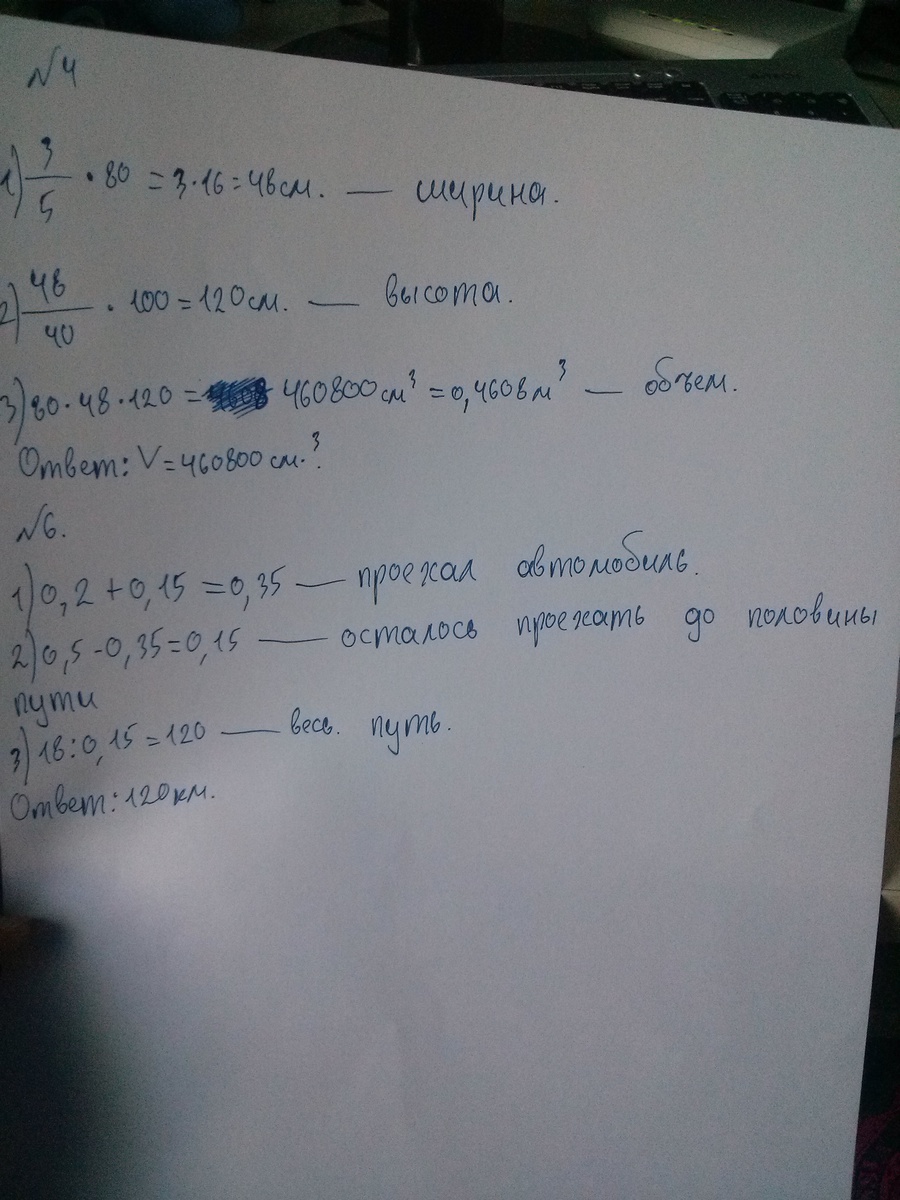 №4
1) 3/5 · 80 = 3·16 = 48см. — ширина.
2) 48/40 · 100 = 120см. — высота.
3) 80·48·120 = 460800 см³ = 0,4608 м³ — объем.
Ответ: V = 460800 см.³
№6.
1) 0,2 + 0,15 = 0,35 — проехал автомобиль.
2) 0,5 - 0,35 = 0,15 — осталось проехать до половины
пути
3) 18 : 0,15 = 120 — весь. путь.
Ответ: 120км.